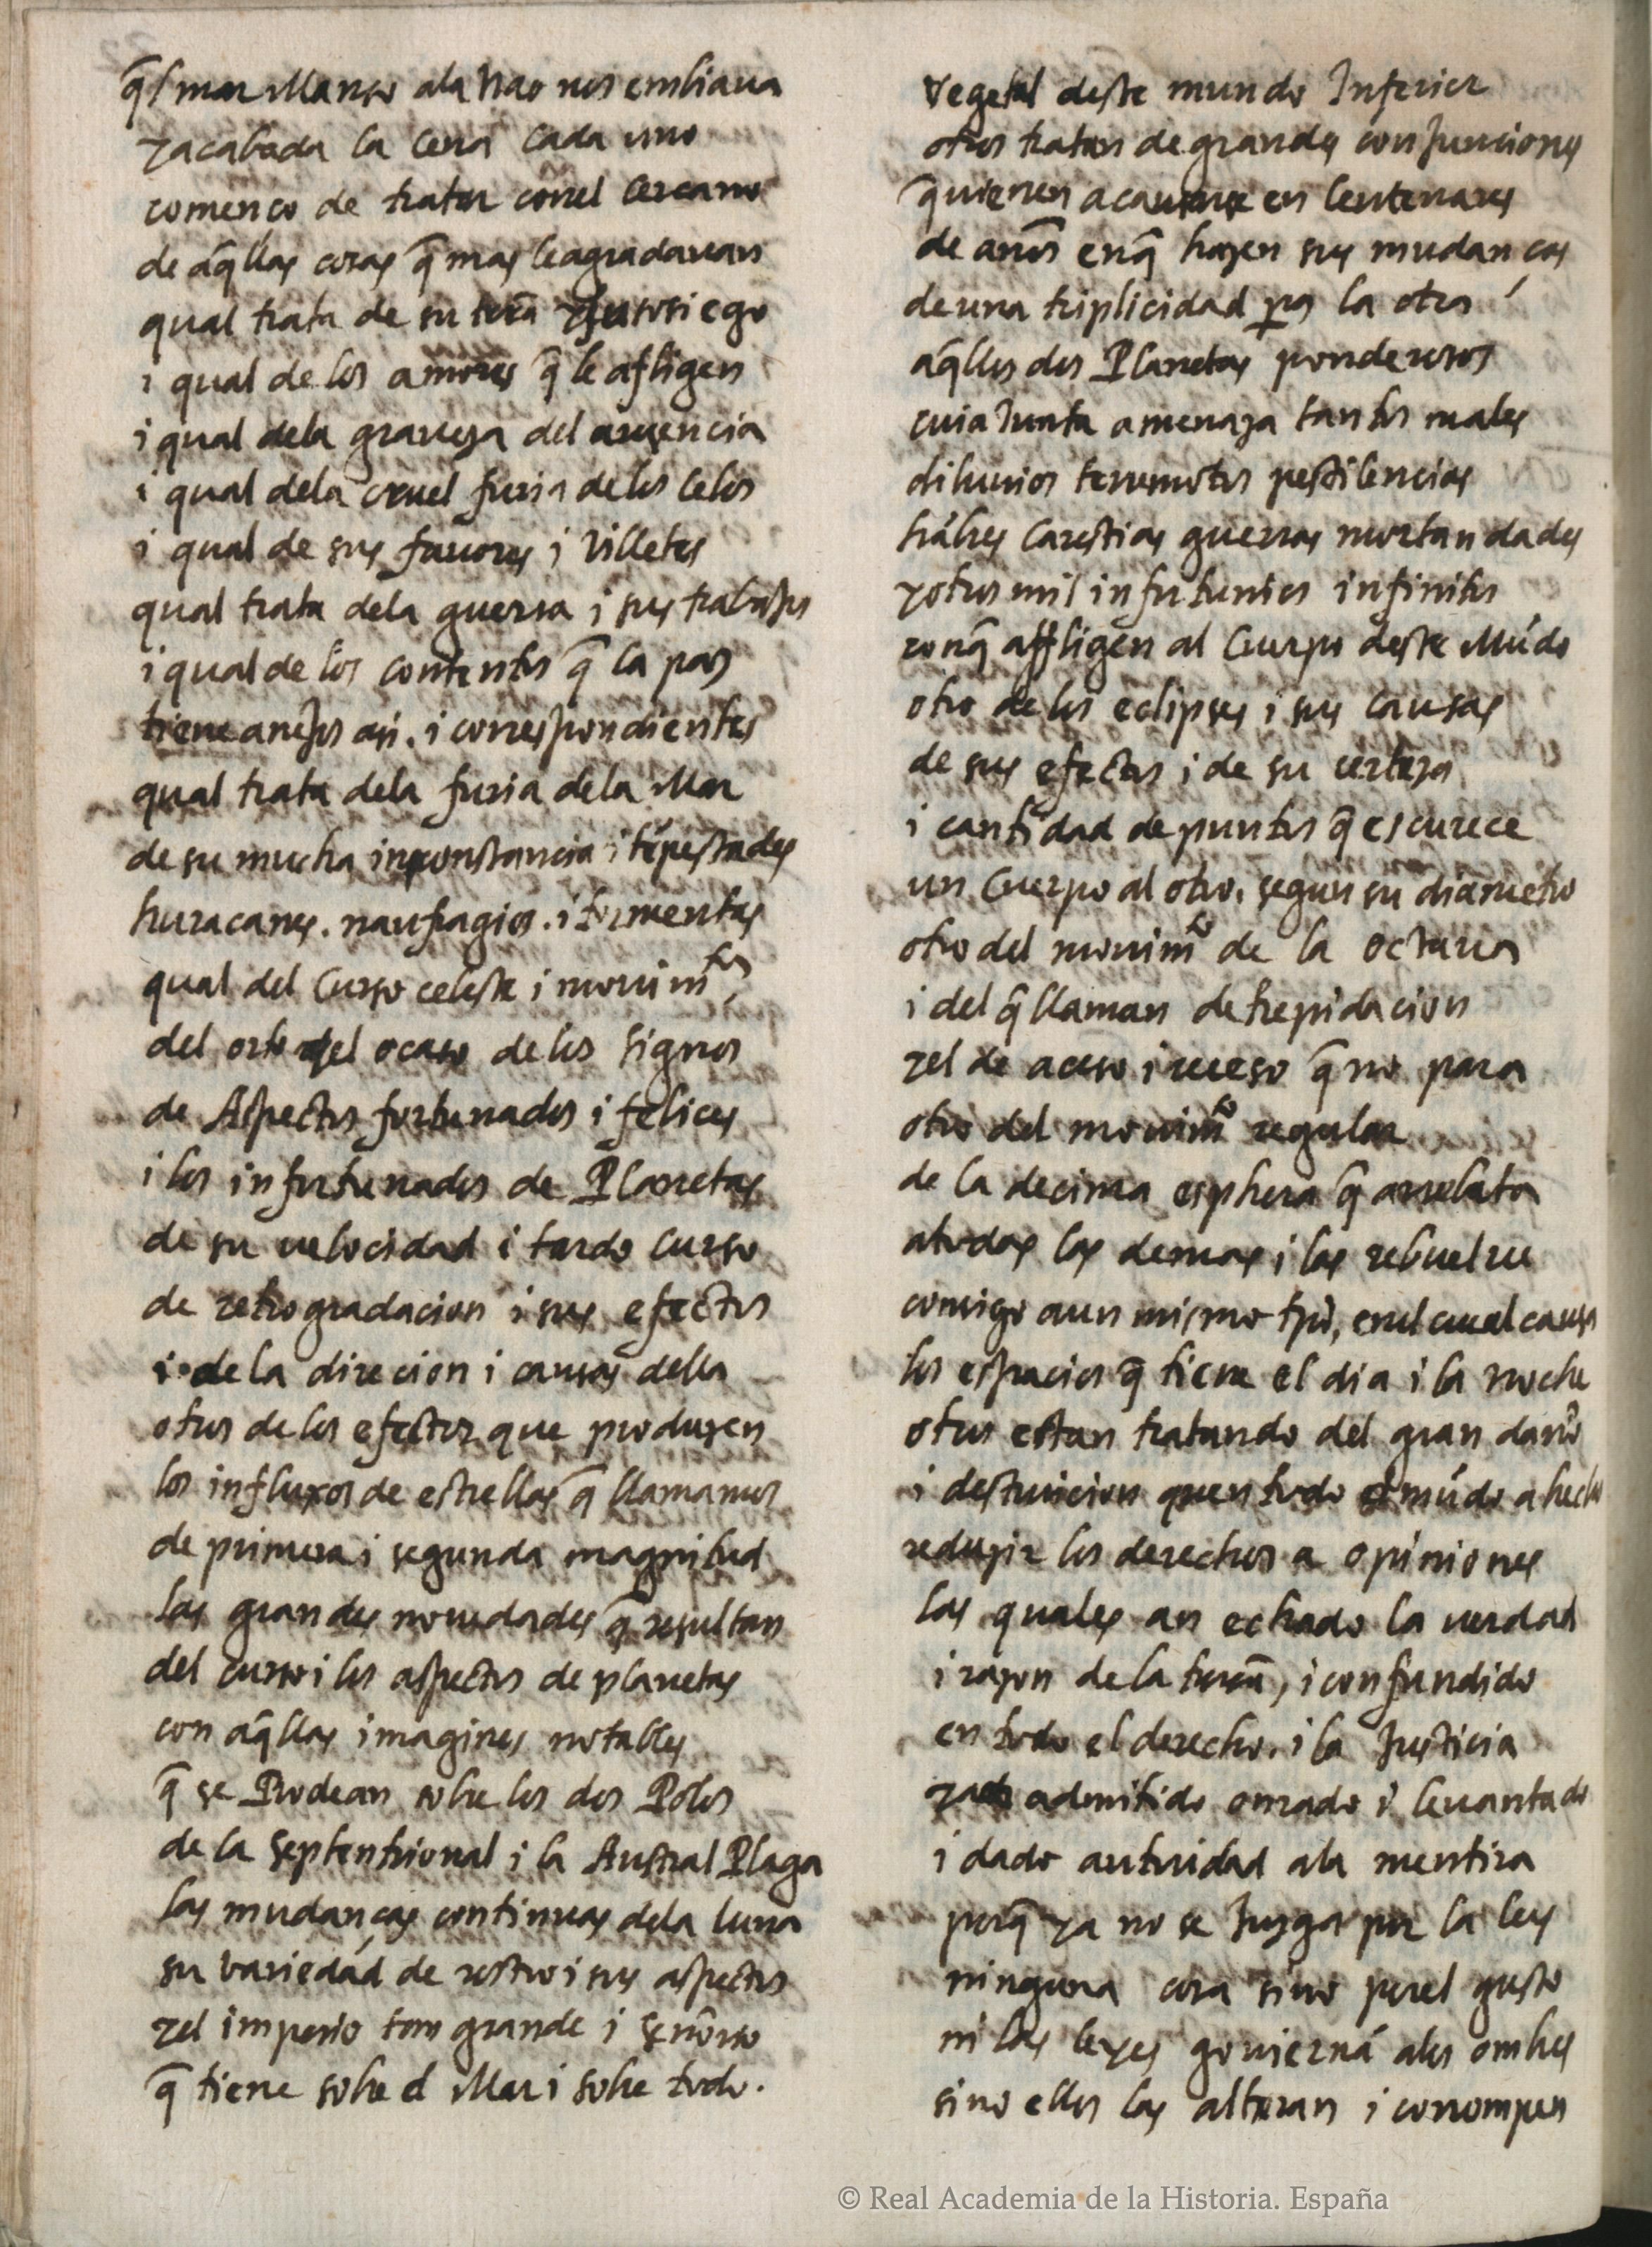 q̃l mar Manso ala Nao nos embiaua
yacabada la cena cada uno
començo de tratar conel cercano
de aq̃llas cosas q̃ mas leagradauan
qual trata de su terrã ysusosiego
i qual de los amores q̃ le afligen
i qual dela graueza del ausencia
i qual dela cruel furia delos celos
i qual de sus fauores i villetes
qual trata dela guerra i sus trabajos
i qual de los contentos q̃ la paz
tiene anejos asi. i correspondientes
qual trata dela furia dela Mar
de su mucha inconstancia i tẽpestades
huracanes. naufragios. i tormentas
qual del Curso celeste i mouimtos,
del orto yel ocaso de los signos
de Aspectos fortunados i felices
i los infortunados de Planetas
de su uelocidad i tardo curso
de retrogradacion i sus efectos
i de la direcion i causas della
otros de los efectos que produzen
los influxos de estrellas q̃ llamamos
de primera i segunda magnitud
las grandes nouedades q̃ resultan
del curso i los aspectos de planetas
con aq̃llas imagines notables
q̃ se Rodean sobre los dos Polos
de la septentrional i la Austral Plaga
las mudanças continuas dela luna
su variedad de rostro i sus aspectos
yel imperio tan grande i señorio
q̃ tiene sobre el Mar i sobre todo.
vegetal deste mundo Inferior
otros tratan de grandes conjunciones
q̃uienen a causarse en Centenares
de años enq̃ hazen sus mudanças
de una triplicidad pa la otra
aq̃llos dos Planetas ponderosos
cuia Junta amenaza tantos males
diluuios terremotos pestilencias
hãbres Carestias guerras mortandades
yotros mil infortunios infinitos
conq̃ affligen al Cuerpo deste Mũdo
otro de los eclipses i sus causas
de sus efectos i de su certeza
i cantidad de puntos q̃ escurece
un Cuerpo al otro. segun su diametro
otro del mouimto de la octaua
i del q̃ llaman detrepidacion
yel de acceso i receso q̃ no para
otro del mouimto regular
de la decima esphera q̃ arrebata
atodas las demas i las rebuelue
consigo aun mismo tpõ, enel cual causa
los espacios q̃ tiene el dia i la noche
otros estan tratando del gran daño
i destruicion quen todo el mũdo a hecho
reduzir los derechos a opiniones
las quales an echado la verdad
i razon de la terrã, i confundido
en todo el derecho. i la Justicia
yan admitido onrado i leuantado
i dado autoridad ala mentira
porq̃ ya no se Juzga por la ley
ninguna cosa sino porel gusto
ni las leyes gouiernã alos ombres
sino ellos las alteran i corrompen
© Real Academia de la Historia. España